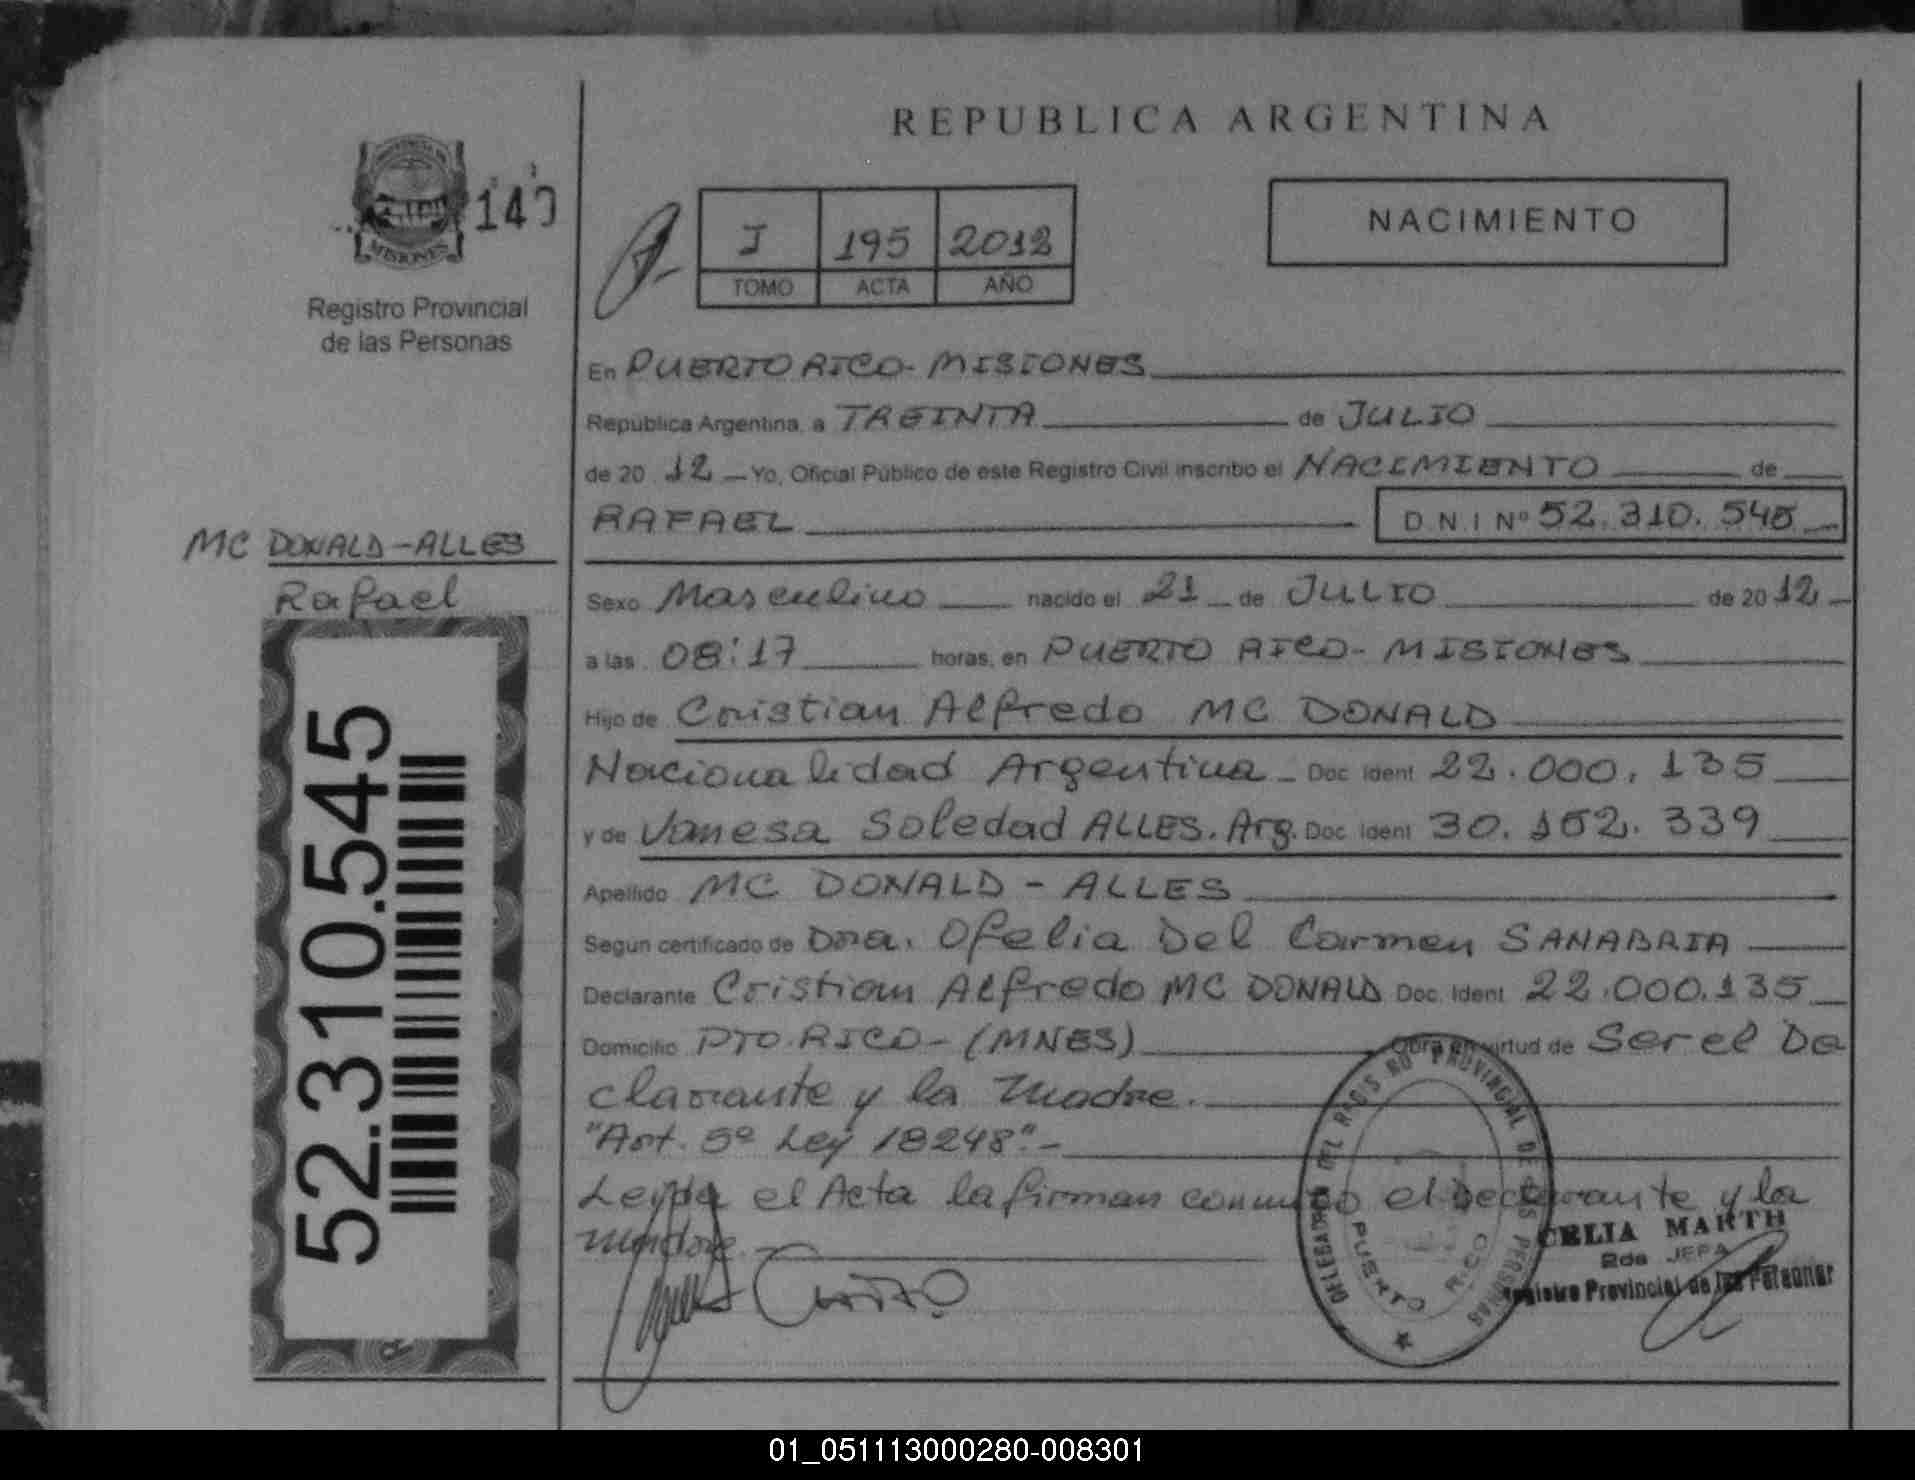 REPUBLICA ARGENTINA
MISIONES
140
Registro Provincial
de las Personas
J 195 2012
TOMO ACTA AÑO
NACIMIENTO
En PUERTO RICO - MISIONES
República Argentina, a TREINTA de JULIO
de 20 12 Yo, Oficial Público de este Registro Civil inscribo el NACIMIENTO de
RAFAEL D.N.I Nº 52.310.545
MC DONALD-ALLES
Rafael
52.310.545
Sexo Masculino nacido el 21 de JULIO de 20 12
a las 08:17 horas, en PUERTO RICO - MISIONES
Hijo de Cristian Alfredo MC DONALD
Nacionalidad Argentina Doc. Ident 22.000.135
y de Vanesa Soledad ALLES. Arg. Doc. Ident 30.152.339
Apellido MC DONALD - ALLES
Según certificado de Dra. Ofelia Del Carmen SANABRIA
Declarante Cristian Alfredo MC DONALD Doc. Ident 22.000.135
Domicilio PTO. RICO - (MNES) Obra en virtud de Ser el De
clarante y la Madre.
"Art. 5º Ley 18248".-
Leyda el Acta la firman conmigo el Declarante y la
Madre.
DELEGACION DEL REGISTRO PROVINCIAL DE LAS PERSONAS
PUERTO RICO
CELIA MARTH
2da JEFA
Registro Provincial de las Personas
01_051113000280-008301